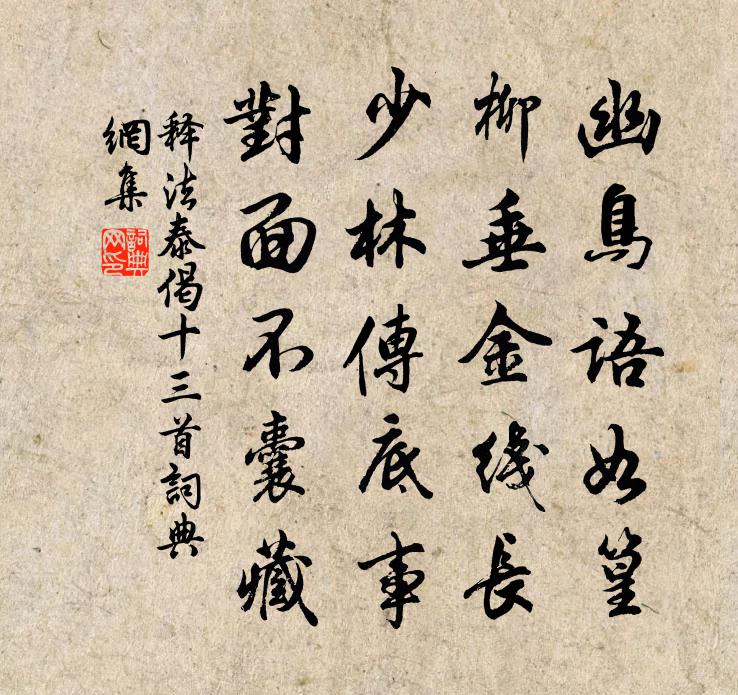 幽鳥語如篁
柳垂金线長
少林傳底事
對面不囊藏
释法泰偈十三首詞典
網集
詞典網印